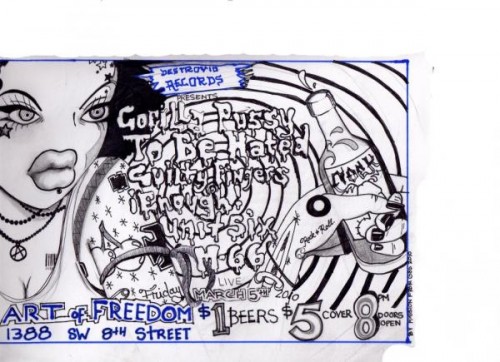 DESTROYID
RECORDS
PRESENTS
Gorilla Pussy
To Be Hated
Guilty Fingers
¡Enough!
Unit Six
M-66
LIVE
Friday
MARCH 5TH 2010
Rock n Roll
ART of FREEDOM
1388 SW 8TH STREET
$1 BEERS $5 COVER 8 PM DOORS OPEN